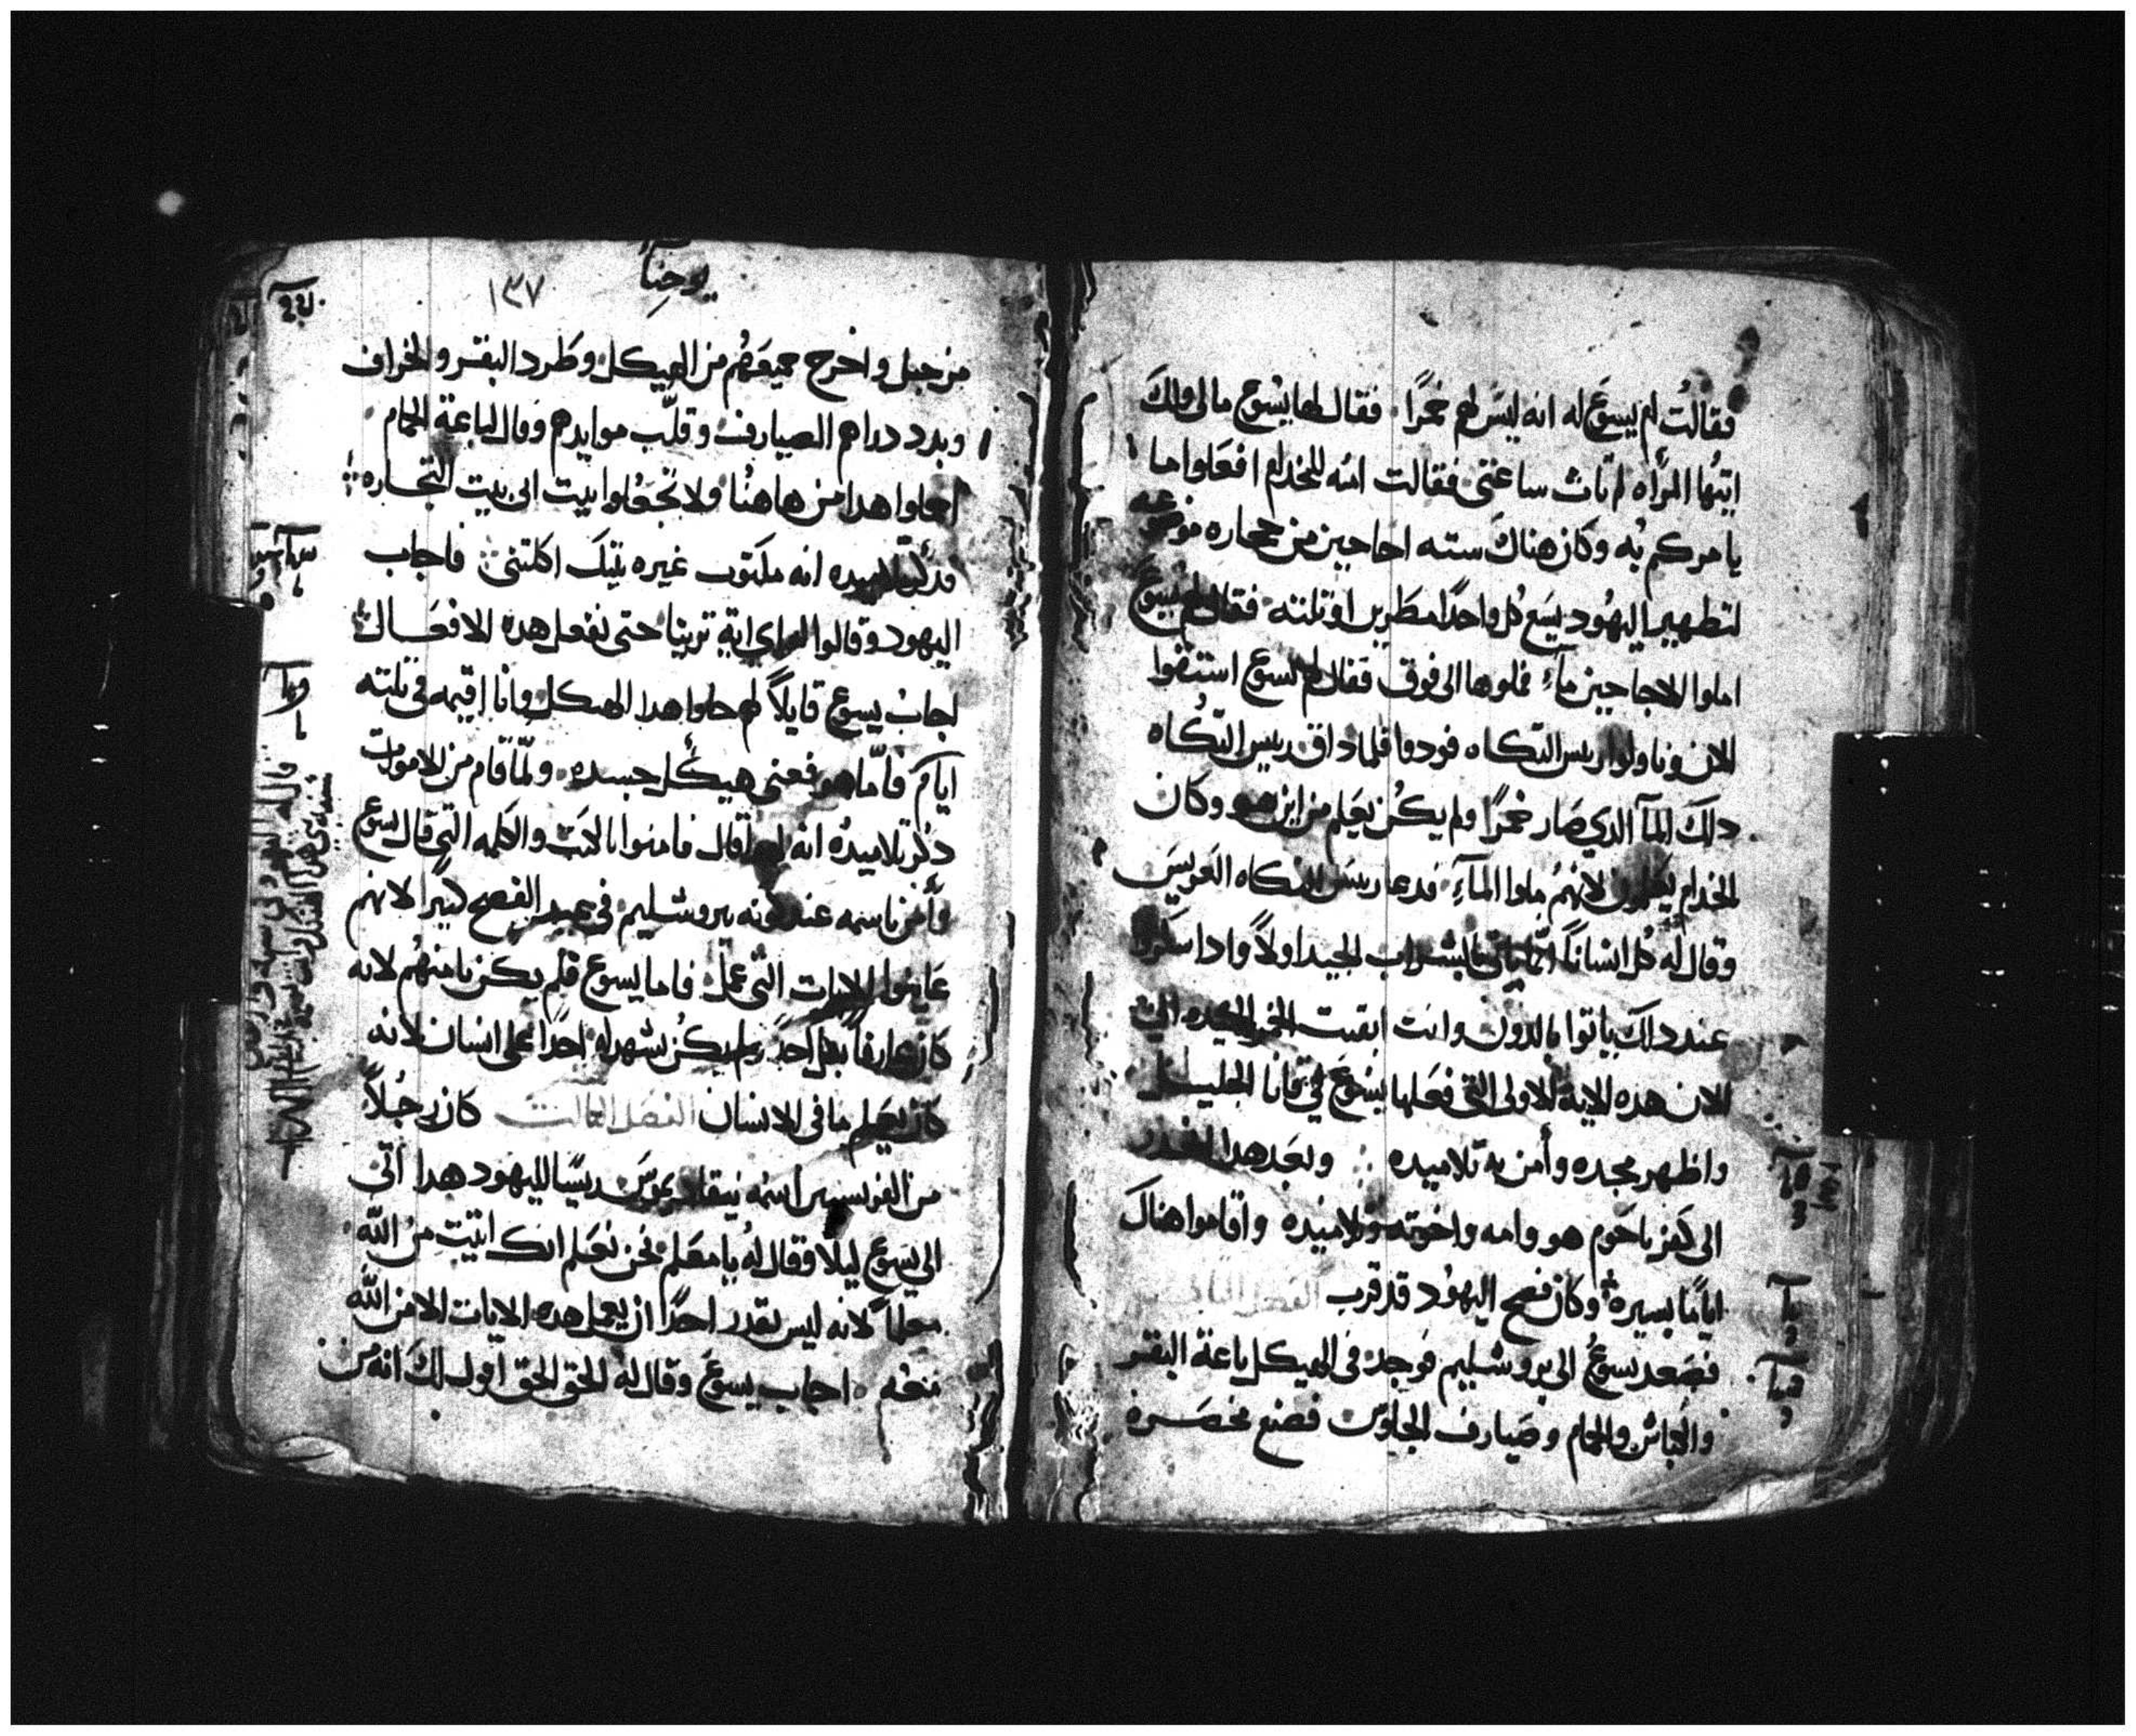 فقالت ام يسوع له انه ليس لهم خمرًا فقال لها يسوع مالى ولك
ايتها المرأه لم تات ساعتى فقالت امه للخدام افعلوا ما
يامركم به وكان هناك سته اجاجين من حجاره موضوعه
لتطهير اليهود يسع كل واحدًا مطرين او تلته فقال لهم يسوع
املوا الاجاجين مآءً فملوها الى فوق فقال لهم يسوع استقوا
الان وناولوا ريس التكاه فلما داق ريس التكاه
دلك المآ الدي صار خمرًا ولم يكن يعلم من اين هو وكان
الخدام يعلمون لانهم ملوا المآءِ فدعا ريس التكاه العريس
وقال له كل انسانًا انما ياتى بالشراب الجيد اولاً وادا سكروا
عند دلك ياتوا بالدون وانت ابقيت الخمر الجيده الى
الان هده الايه الاولى التى فعلها يسوع في قانا الجليل
واظهر مجده وأمن به تلاميده وبعد هدا انحدر
الى كفرناحوم هو وامه واخوته وتلاميده واقاموا هناك
ايامًا يسيره وكان فصح اليهود قد قرب الفصل التانى
فصعد يسوع الى يروشليم فوجد فى الهيكل باعة البقر
والكباش والحمام وصيارف الجلوس فصنع مخصرة
يوحنا
١٣٧
من حبل واخرج جميعهم من الهيكل وطرد البقر والخراف
وبدد دراهم الصيارف وقلّب موايدهم وقال لباعة الحمام
احملوا هدا من هاهنا ولا تجعلوا بيت ابى بيت التجاره
فدكر تلاميده انه مكتوب غيره بيتك اكلتنى فاجاب
اليهود وقالوا له اى اية ترينا حتى تفعل هده الافعال
اجاب يسوع قايلاً لهم حلوا هدا الهيكل وانا اقيمه فى تلته
ايام فأمّا هو فعنى هيكل جسده ولمّا قام من الاموات
دكر تلاميده انه لهدا قال فامنوا بالكتب والكلمه التى قال يسوع
وأمن باسمه عند كونه بيروشليم فى عيد الفصح كتيرا لانهم
عاينوا الايات التى عمل فاما يسوع فلم يكن يامنهم لانه
كان عارفًا بكل احد ولم يكن يشهد له احدًا على انسان لانه
كان يعلم ما فى الانسان الفصل التالت كان رجلاً
من الفريسيين اسمه نيقاديموس ريسًا لليهود هدا اتى
الى يسوع ليلًا وقال له يا معلم نحن نعلم انك اتيت من الله
معلمًا لانه ليس يقدر احدًا ان يعمل هده الايات الا من الله
معه اجاب يسوع وقال له الحق الحق اقول لك انه من